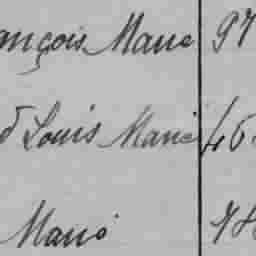 ançois Marie 97
d Louis Marie 46
Marie 78